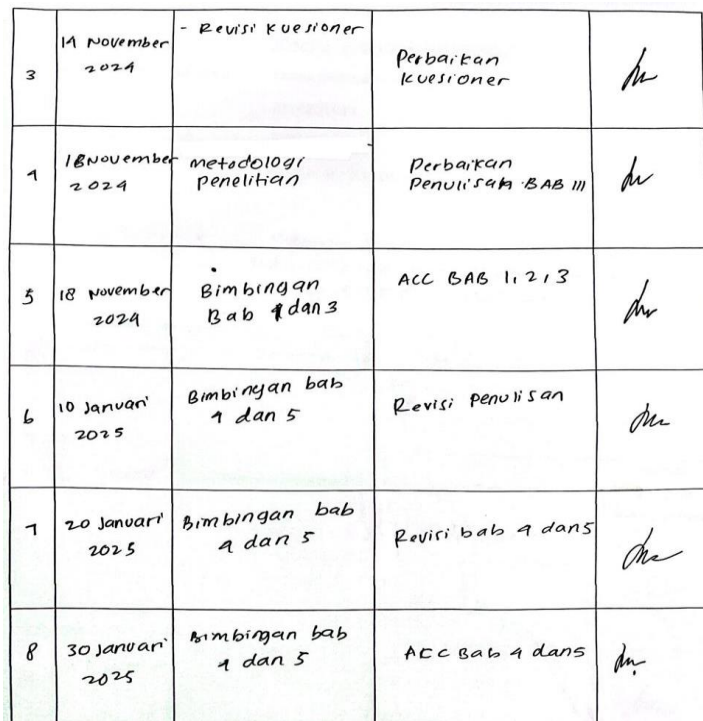 3
14 November
2024
- Revisi kuesioner
Perbaikan
kuesioner
4
18 November
2024
metodologi
penelitian
Perbaikan
Penulisan BAB III
5
18 November
2024
Bimbingan
Bab 1 dan 3
ACC BAB 1, 2, 3
6
10 Januari
2025
Bimbingan bab
4 dan 5
Revisi penulisan
7
20 Januari
2025
Bimbingan bab
4 dan 5
Revisi bab 4 dan 5
8
30 Januari
2025
Bimbingan bab
4 dan 5
ACC Bab 4 dan 5